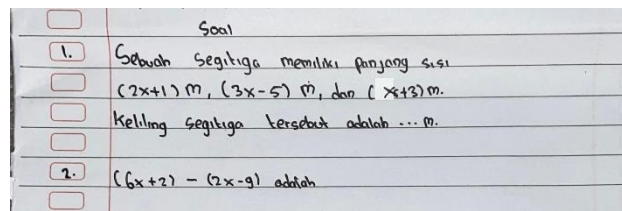 Soal
1. Sebuah segitiga memiliki panjang sisi
(2x+1) m, (3x-5) m, dan ( x+3) m.
Keliling segitiga tersebut adalah ... m.
2. (6x+2) - (2x-9) adalah